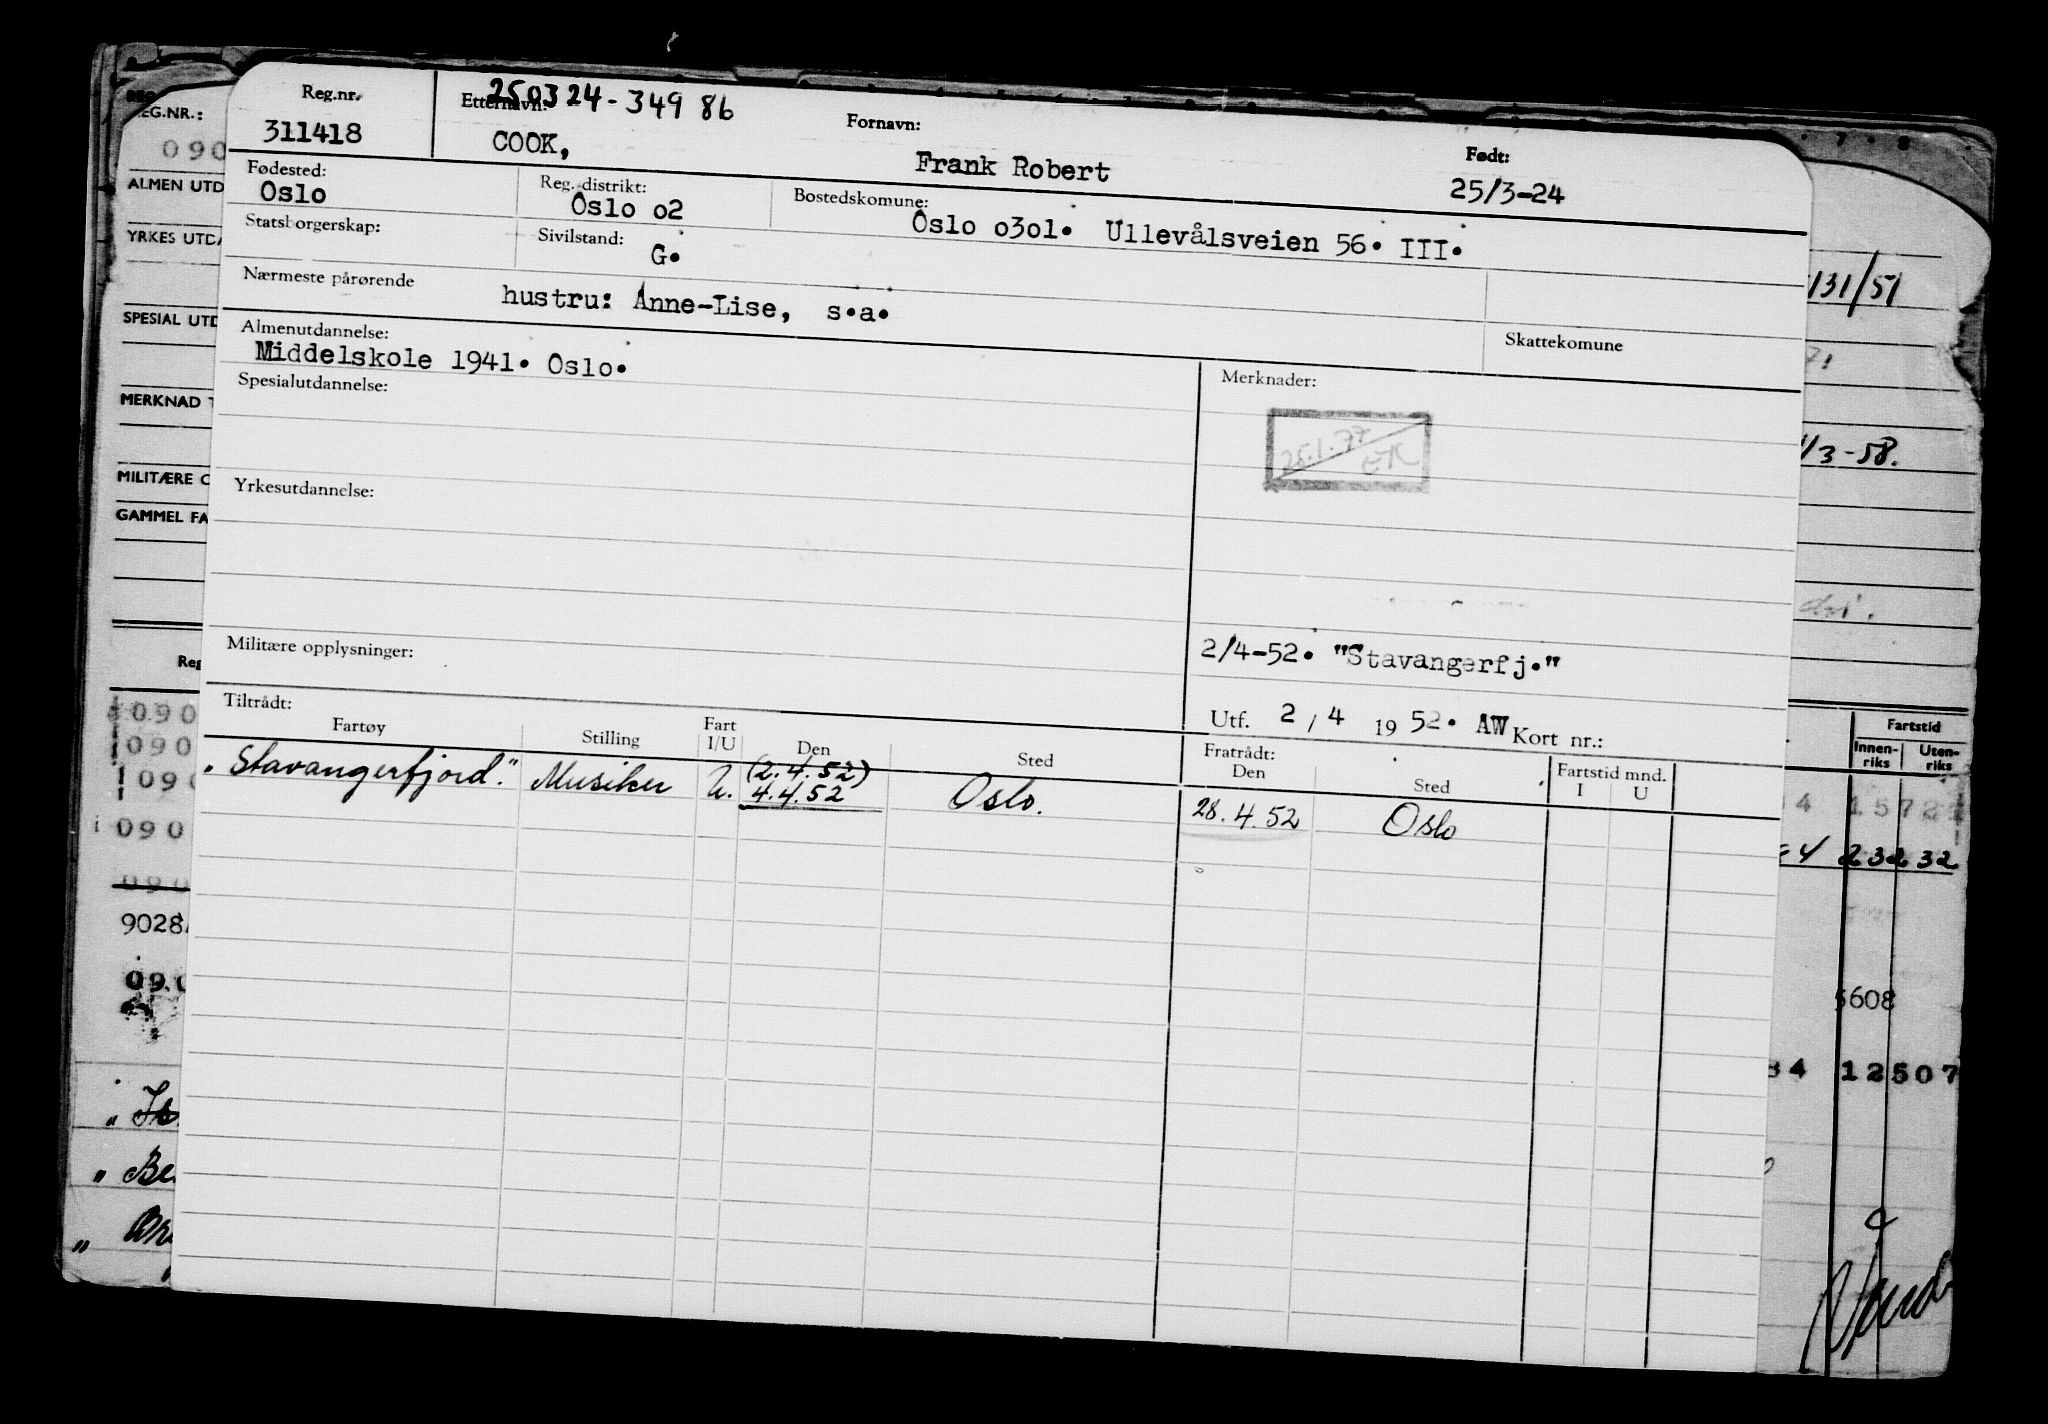 Reg.nr.
311418
250324-34986
Etternavn:
COOK,
Fornavn:
Frank Robert
Født:
25/3-24
Fødested:
Oslo
Reg. distrikt:
Oslo o2
Bostedskomune:
Oslo o3o1. Ullevålsveien 56. III.
Statsborgerskap:
Sivilstand:
G.
Nærmeste pårørende
hustru: Anne-Lise, s.a.
Skattekomune
Almenutdannelse:
Middelskole 1941. Oslo.
Spesialutdannelse:
Merknader:
25.1.77
EK
Yrkesutdannelse:
Militære opplysninger:
2/4-52. "Stavangerfj."
Utf. 2 / 4 19 52. AW Kort nr.:
Tiltrådt:
Fartøy Stilling Fart I/U Den Sted
Fratrådt:
Den Sted
Fartstid mnd.
I U
"Stavangerfjord." Musiker U. (2.4.52)
4.4.52 Oslo. 28.4.52 Oslo
REG.NR.:
090
ALMEN UTD
YRKES UTDA
SPESIAL UTD
MERKNAD T
MILITÆRE O
GAMMEL FA
Reg
090
090
090
090
090
9028
09.0
131/51
1/3-58.
Fartstid
Innen-
riks
Uten-
riks
4 15722
4 232 32
5608
84 12507
" Be